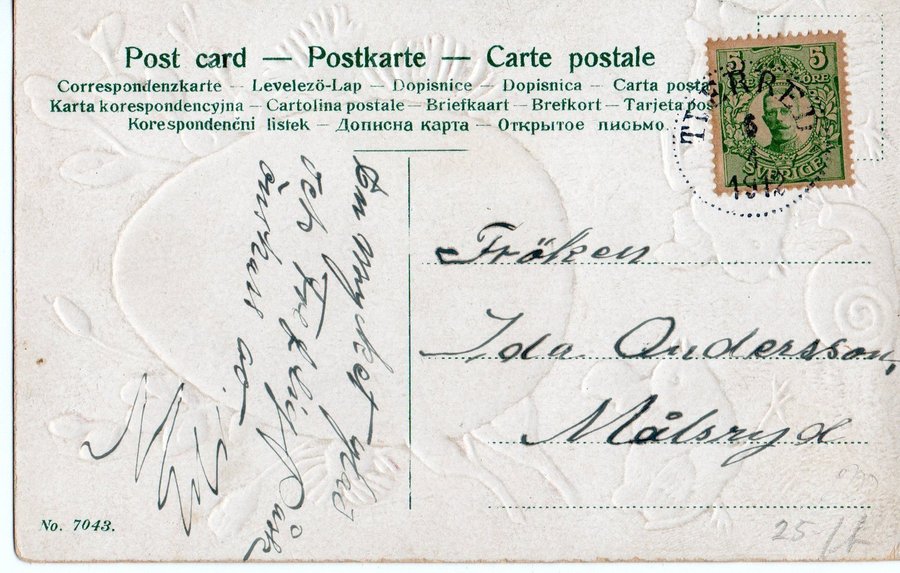 Post card — Postkarte — Carte postale
Correspondenzkarte — Levelezö-Lap — Dopisnice — Dopisnica — Carta posta
Karta korespondencyjna — Cartolina postale — Briefkaart — Brefkort — Tarjeta pos
Korespondenčni listek — Дописна карта — Открытое письмо.
5 5
ÖRE
SVERIGE
1912
En Mycket glad
och Treflig Påsk
önskas av
Fröken
Ida Andersson,
Målsryd
No. 7043.
25-